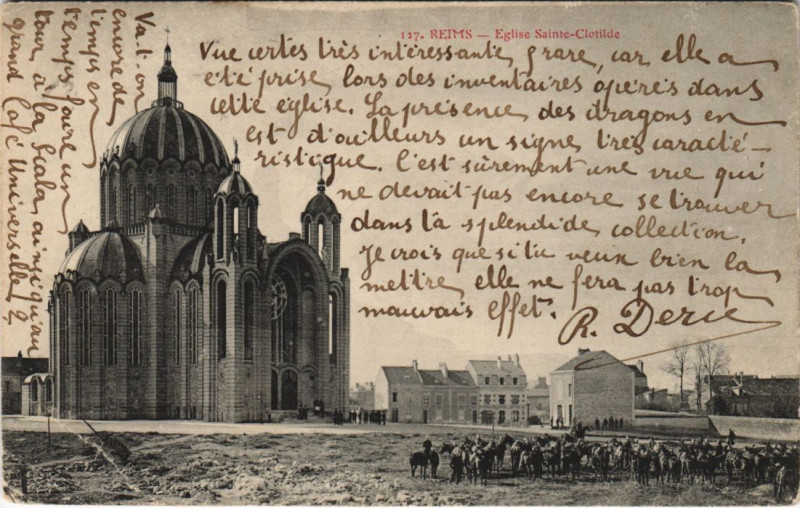 127. REIMS — Eglise Sainte-Clotilde
Vue certes très intéressante, grare, car elle a
été prise, lors des inventaires opérés dans
cette église. La présence, des dragons en
est d'ailleurs un signe, très caracté-
ristique. C'est sûrement une vue qui
ne devait pas encore se trouver
dans ta splendide, collection.
Je crois que si tu veux bien la
mettre, elle ne fera pas trop
mauvais effet.
R. Derie
Va-t-on
encore de
temps en
temps faire un
tour à la Scala, ainsi qu'au
grand Café Universelle ?